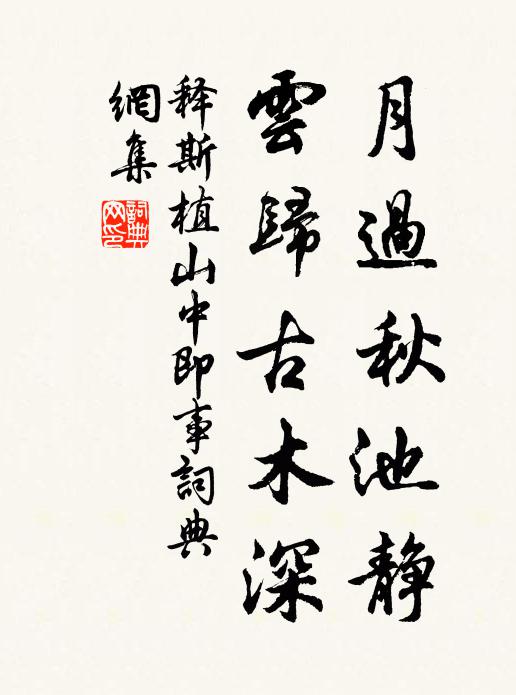 月過秋池静
雲歸古木深
释斯植山中即事詞典
網集
詞典
网印